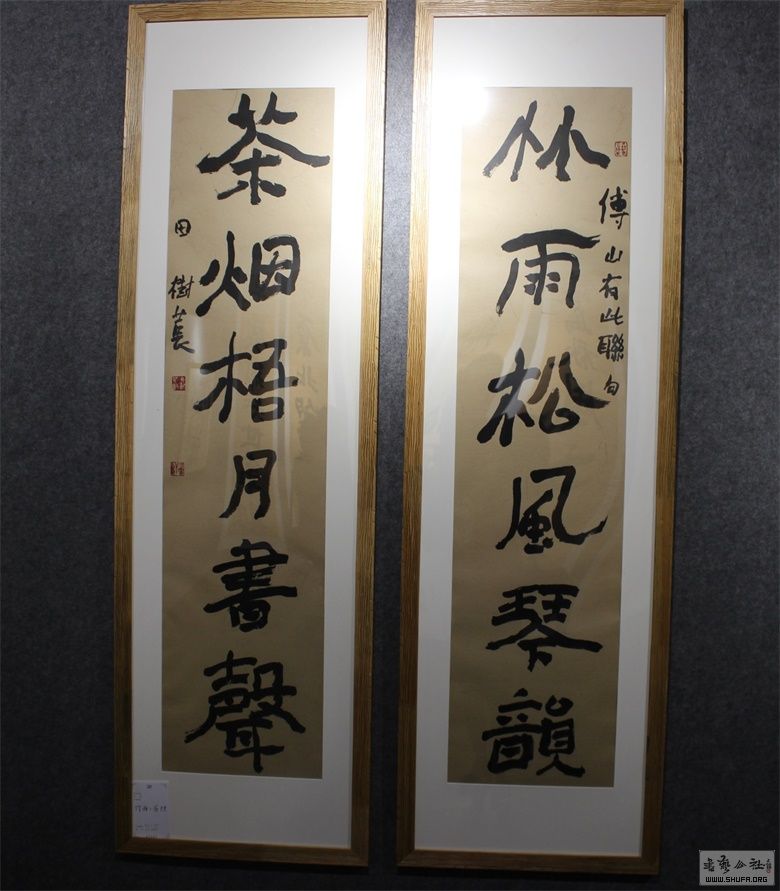 竹雨松風琴韻
傅山有此聯句
茶烟梧月書聲
田樹萇
書藝公社
WWW.SHUFA.ORG